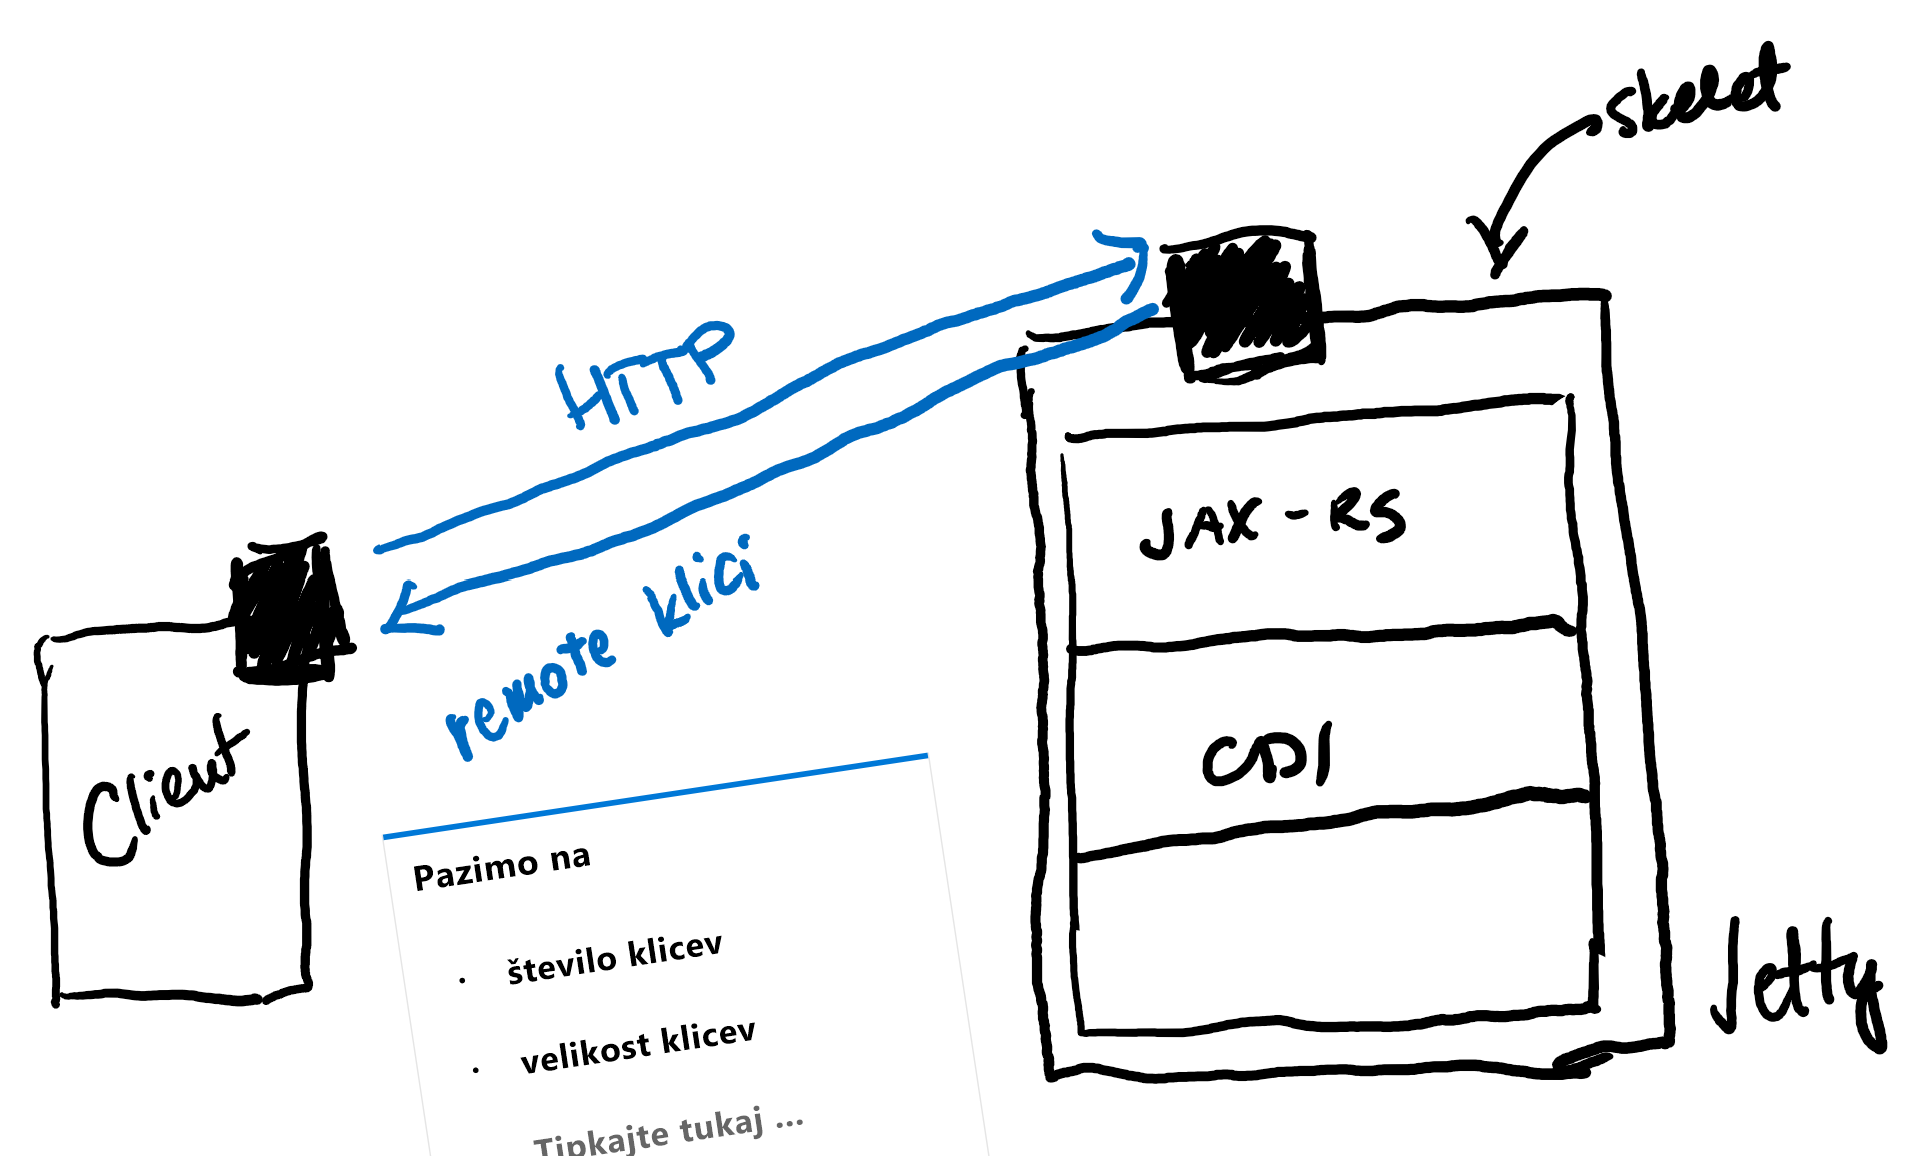 skelet
HTTP
remote klici
JAX-RS
Client
CDI
Pazimo na
• število klicev
• velikost klicev
Tipkajte tukaj ...
Jetty